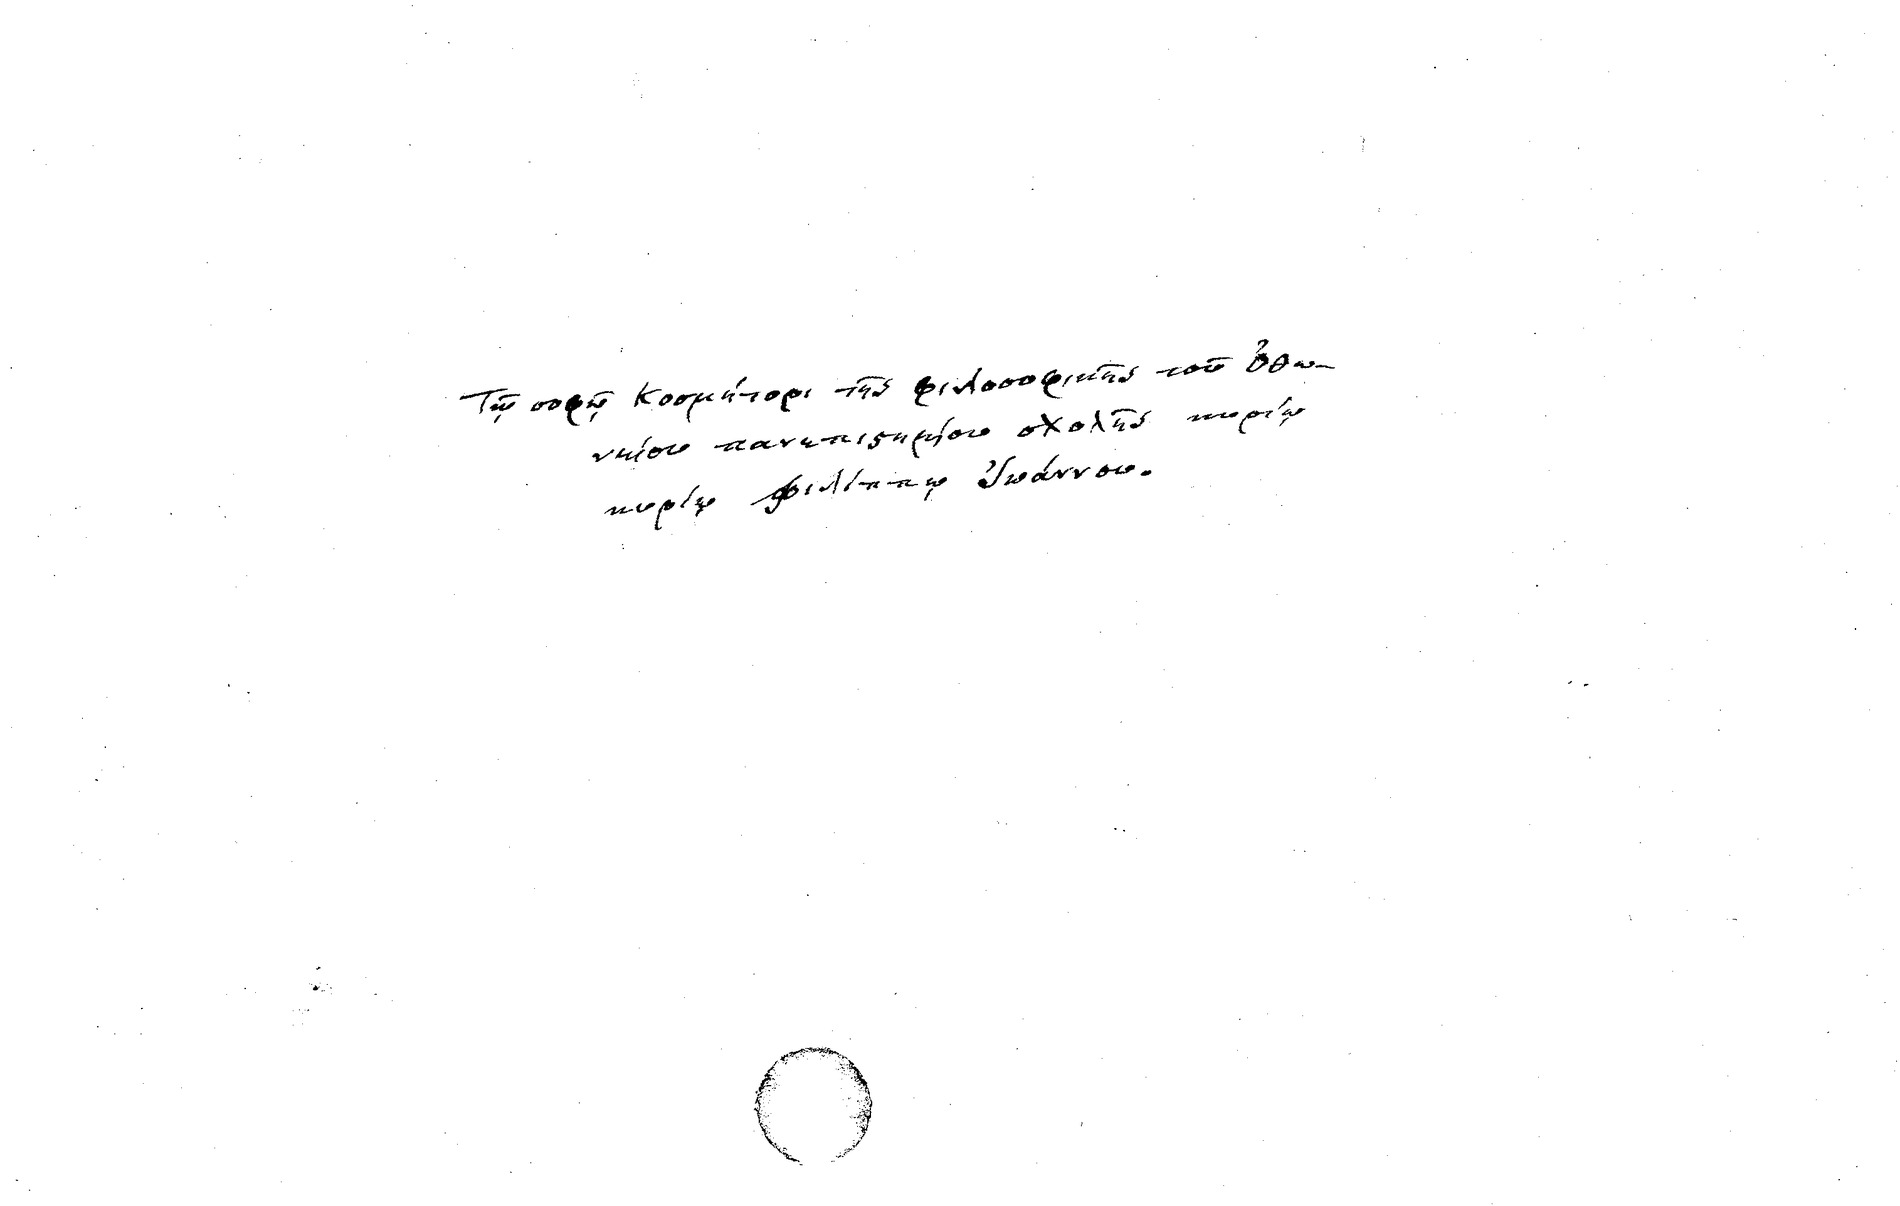 Τῷ σοφῷ Κοσμήτορι τῆς φιλοσοφικῆς τοῦ Ὀθω-
νείου πανεπιστημίου σχολῆς κυρίῳ
κυρίῳ Φιλίππῳ Ἰωάννου.